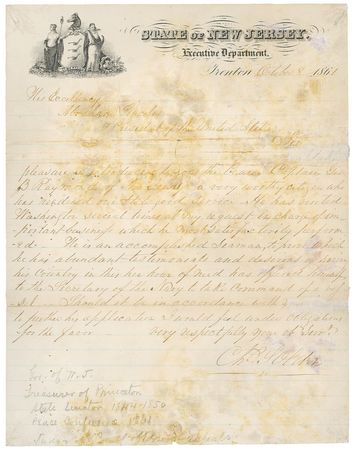 STATE OF NEW JERSEY.
Executive Department,
Trenton October 8 1861
His Excellency
Abraham Lincoln
President of the United States
pleasure of introducing to you the bearer Captain
B Raymond of New Jersey a very worthy citizen who
has rendered our State good Service He has visited
Washington several times at my request in charge of im
portant business which he has satisfactorily perform
ed. He is an accomplished Seaman, to prove which
he has abundant testimonials and desirous of serving
his Country in this her hour of need has offered himself
to the Secretary of the Navy to take Command of a ves
sel. Should it be in accordance with
to further his application I would feel under obligations
for the favor very respectfully your ob Servt
Ch S Olden
Gov. of N.J.
Treasurer of Princeton
State Senator 1844-1850
Peace Conference 1861
Judge of Court of Errors & Appeals